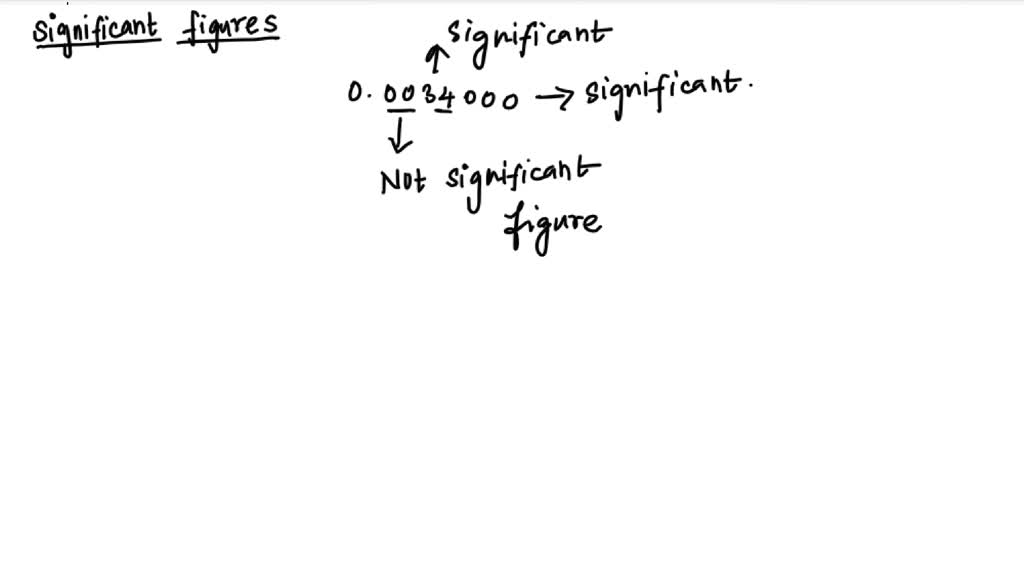 significant figures
significant
0.0034000 → significant.
Not significant
figure